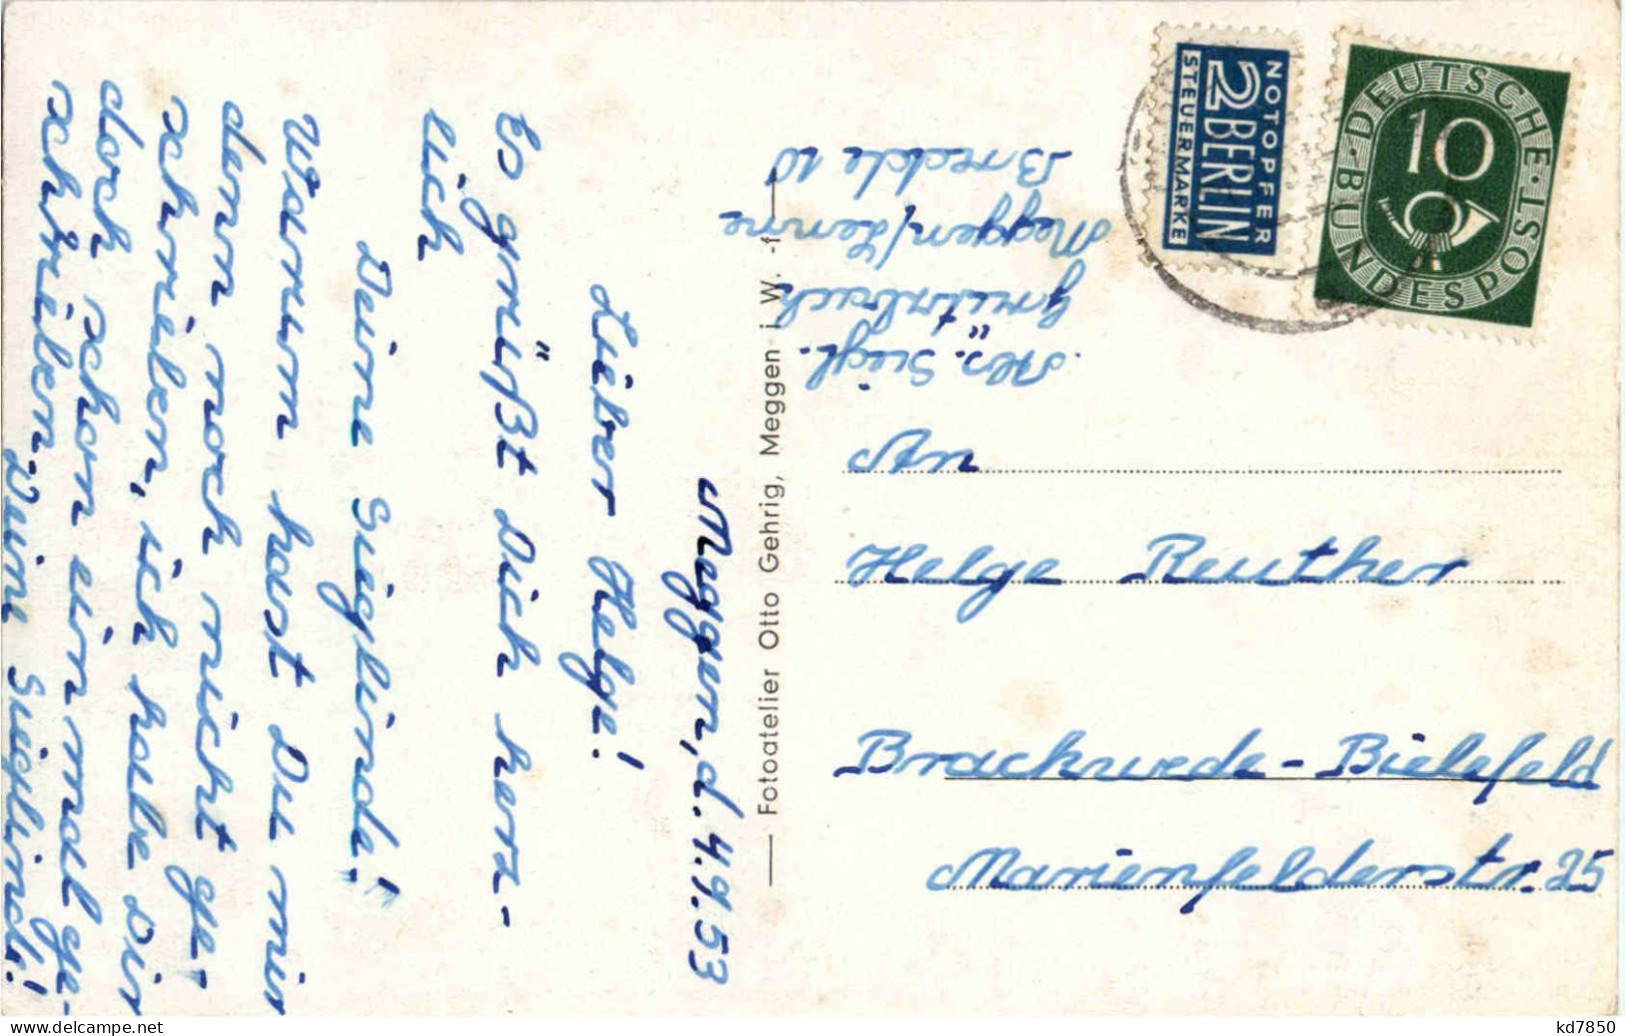 Meggen, d. 4.9.53
Lieber Helge!
Es grüßt Dich herz-
lich
Deine Sieglinde!
Warum hast Du mir
denn noch nicht ge-
schrieben, ich habe dir
doch schon einmal ge-
schrieben. Deine Sieglinde!
— Fotoatelier Otto Gehrig, Meggen i. W. -f—
Abs. Siegl.
Meggen/Lenne
Breckle 10
NOTOPFER
2 BERLIN
STEUERMARKE
DEUTSCHE · BUNDESPOST
10
An
Helge Reuther
Brackwede-Bielefeld
Marienfelderstr. 25
kd7850